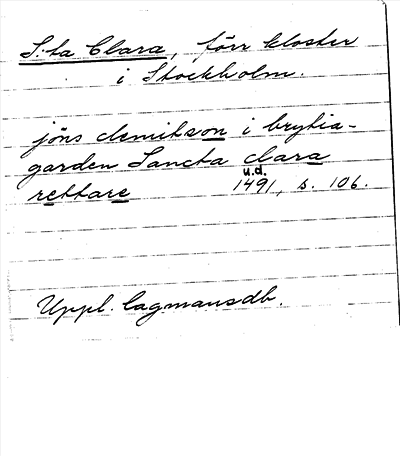 S:ta Clara, förr kloster
i Stockholm.
jöns clemitson i brytia-
garden Sancta clara
rettare u.d. 1491, s. 106.
Uppl. lagmansdb.